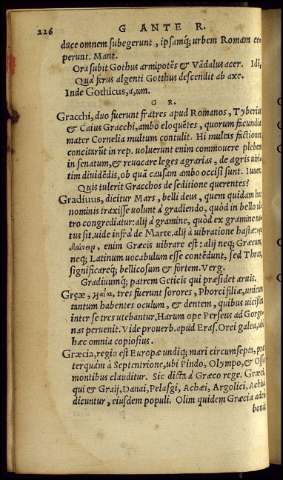 226 G ANTE R.
duce omnem subegerunt, ipsamq; urbem Romam ceperunt. Mant.
Ora subit Gothus armipotēs & Vādalus acer. Idi,
Quā ferus algenti Gotthus descendit ab axe.
Inde Gothicus, a, um.
G R.
Gracchi, duo fuerunt fratres apud Romanos, Tyberiu
& Caius Gracchi, ambo eloquētes, quorum facundiæ
mater Cornelia multum contulit. Hi multis
concitarūt in rep. voluerunt enim commouere plebem
in senatum, & reuocare leges agrarias, de agris
tim diuidēdis, ob quā causam ambo occisi sunt. Iuuen
Quis tulerit Gracchos de seditione querentes?
Gradiuus, dicitur Mars, belli deus, quem quidam
nominis traxisse volunt à gradiendo, quòd in bello
tro congrediatur: alij à gramine, quòd ex gramine
tus sit. vide infrà de Marte. alij à vibratione hastæ
enim Græcis vibrare est: alij neq; Græcum,
neq; Latinum vocabulum esse contēdunt, sed Thrac
significareq; bellicosum & fortem. Verg.
Gradiuumq; patrem Geticis qui præsidet aruis.
Grææ, tres fuerunt sorores, Phorci filiæ, unicum
tantum habentes oculum, & dentem, quibus vicissim
inter se tres utebantur, Harum ope Perseus ad Gorgonas
peruenit. Vide prouerb. apud Eras. Orci galea,
hæc omnia copiosius.
Græcia, regio est Europæ undiq; mari circumsepta, præ
terquàm à Septentrione, ubi Pindo, Olympo, &
montibus clauditur. Sic dicta à Græco rege. Græci
qui & Graij, Danai, Pelasgi, Achæi, Argolici,
dicuntur, eiusdem populi. Olim quidem Græcia